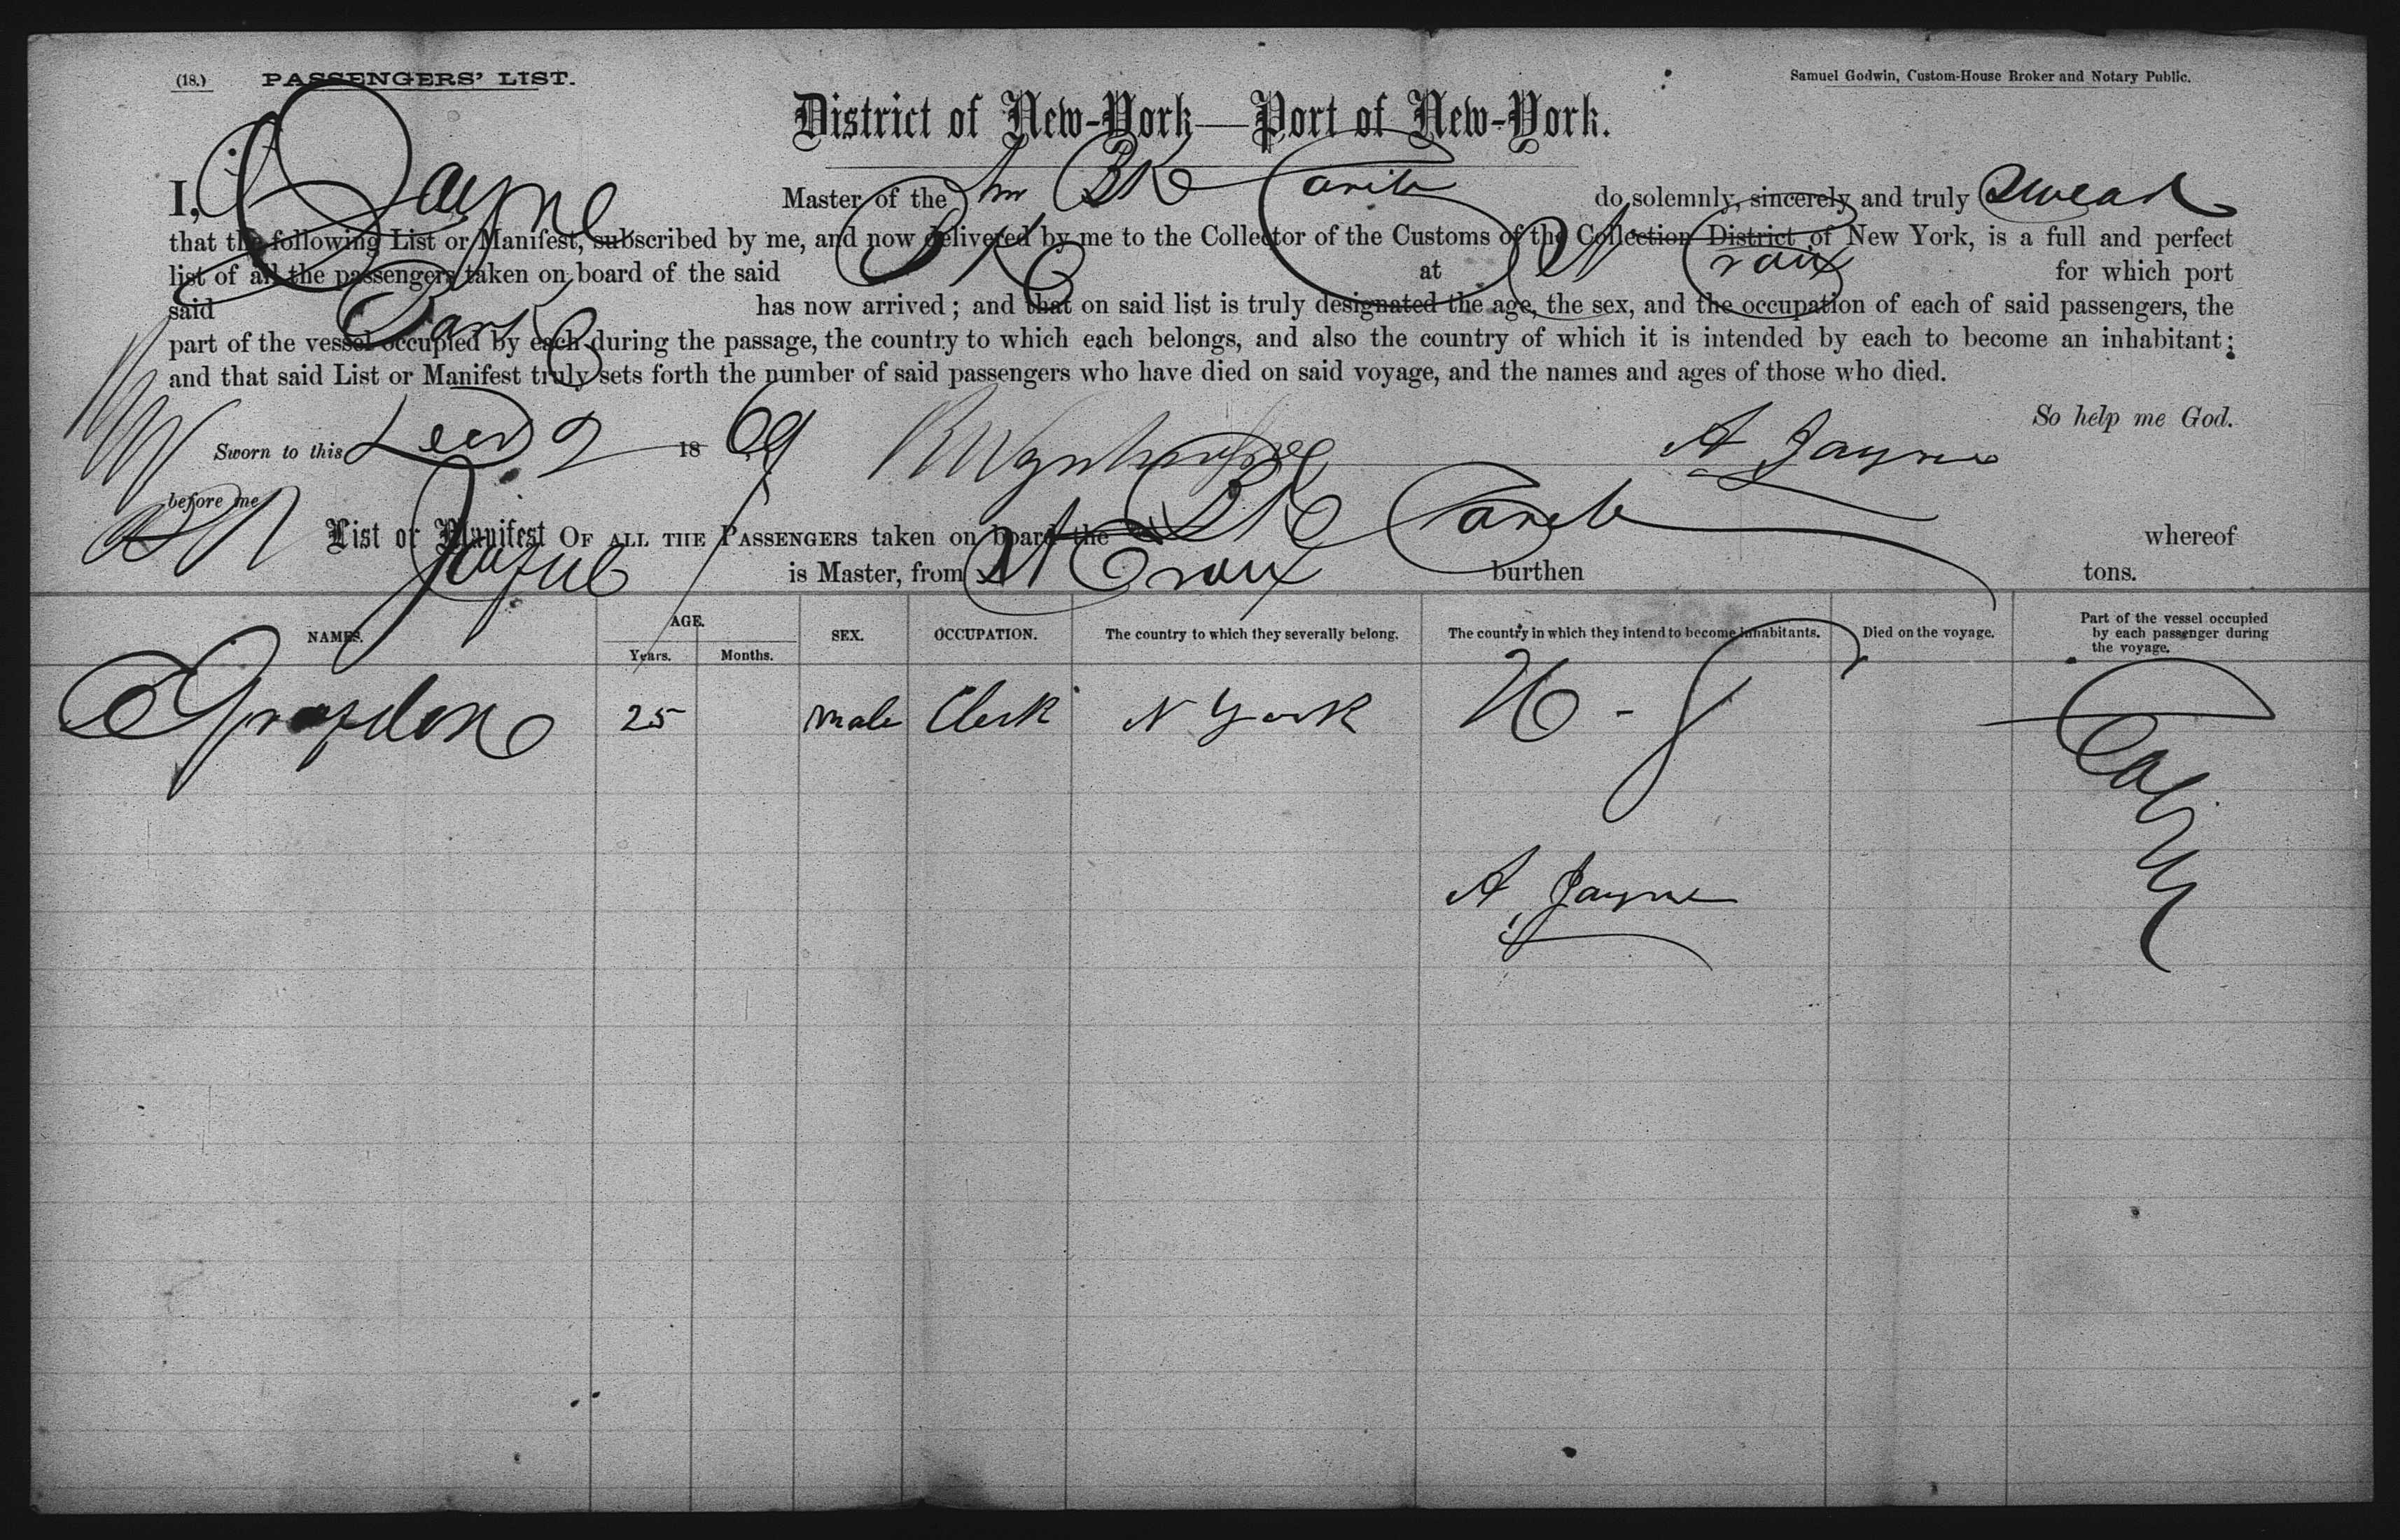 (18.) PASSENGERS' LIST. Samuel Godwin, Custom-House Broker and Notary Public.
District of New-York—Port of New-York.
I, A Jayne Master of the Am Bk Carib do solemnly, sincerely and truly swear
that the following List or Manifest, subscribed by me, and now delivered by me to the Collector of the Customs of the Collection District of New York, is a full and perfect
list of all the passengers taken on board of the said Bk at St Croix for which port
said Bark has now arrived; and that on said list is truly designated the age, the sex, and the occupation of each of said passengers, the
part of the vessel occupied by each during the passage, the country to which each belongs, and also the country of which it is intended by each to become an inhabitant;
and that said List or Manifest truly sets forth the number of said passengers who have died on said voyage, and the names and ages of those who died.
So help me God.
Sworn to this Decr 2 1869 A Jayne
before me
List or Manifest OF ALL THE PASSENGERS taken on board the Bk Carib whereof
Jayne is Master, from St Croix burthen tons.
NAMES. AGE. Years. Months. SEX. OCCUPATION. The country to which they severally belong. The country in which they intend to become inhabitants. Died on the voyage. Part of the vessel occupied by each passenger during the voyage.
25 male Clerk N York N-Y Cabin
A Jayne